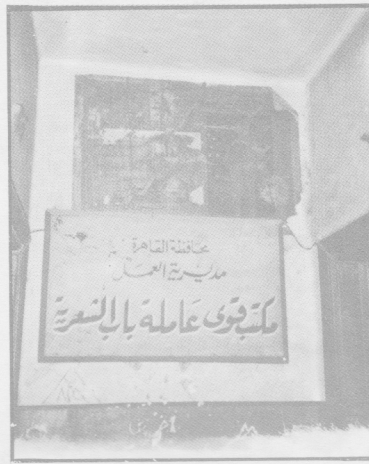 محافظة القاهرة
مديرية العمل
مكتب قوى عاملة باب الشعرية